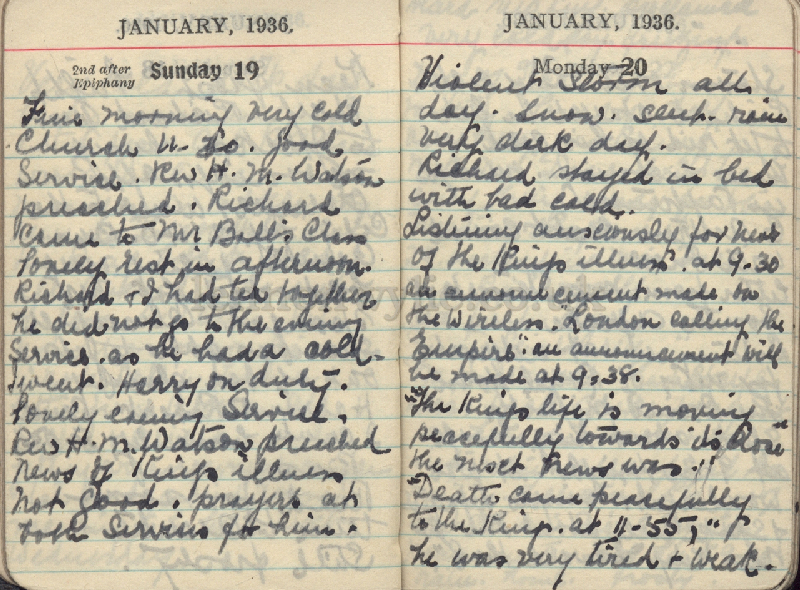 JANUARY, 1936.
2nd after Epiphany Sunday 19
Fine morning very cold
Church 11-30. Good
Service. Rev H. M. Watson
preached. Richard
came to Mr Ball's Class
Lonely rest in afternoon.
Richard + I had tea together
he did not go to the evening
Service. as he had a cold-
I went. Harry on duty.
Lovely evening Service.
Rev H. M. Watson preached
News of Kings illness
not good. prayers at
both Services for him.
JANUARY, 1936.
Monday 20
Violent Storm all
day. Snow. sleet. rain
very dark day.
Richard stayed in bed
with bad cold.
Listining anxiously for news
of the Kings illness. at 9-30
an announcement made on
the Wireless. "London calling the
Empire": an announcement will
be made at 9-38.
"The Kings life is moving
peacefully towards its close"
the next news was.
"Death came peacefully
to the King. at 11-55,"
he was very tired + weak.